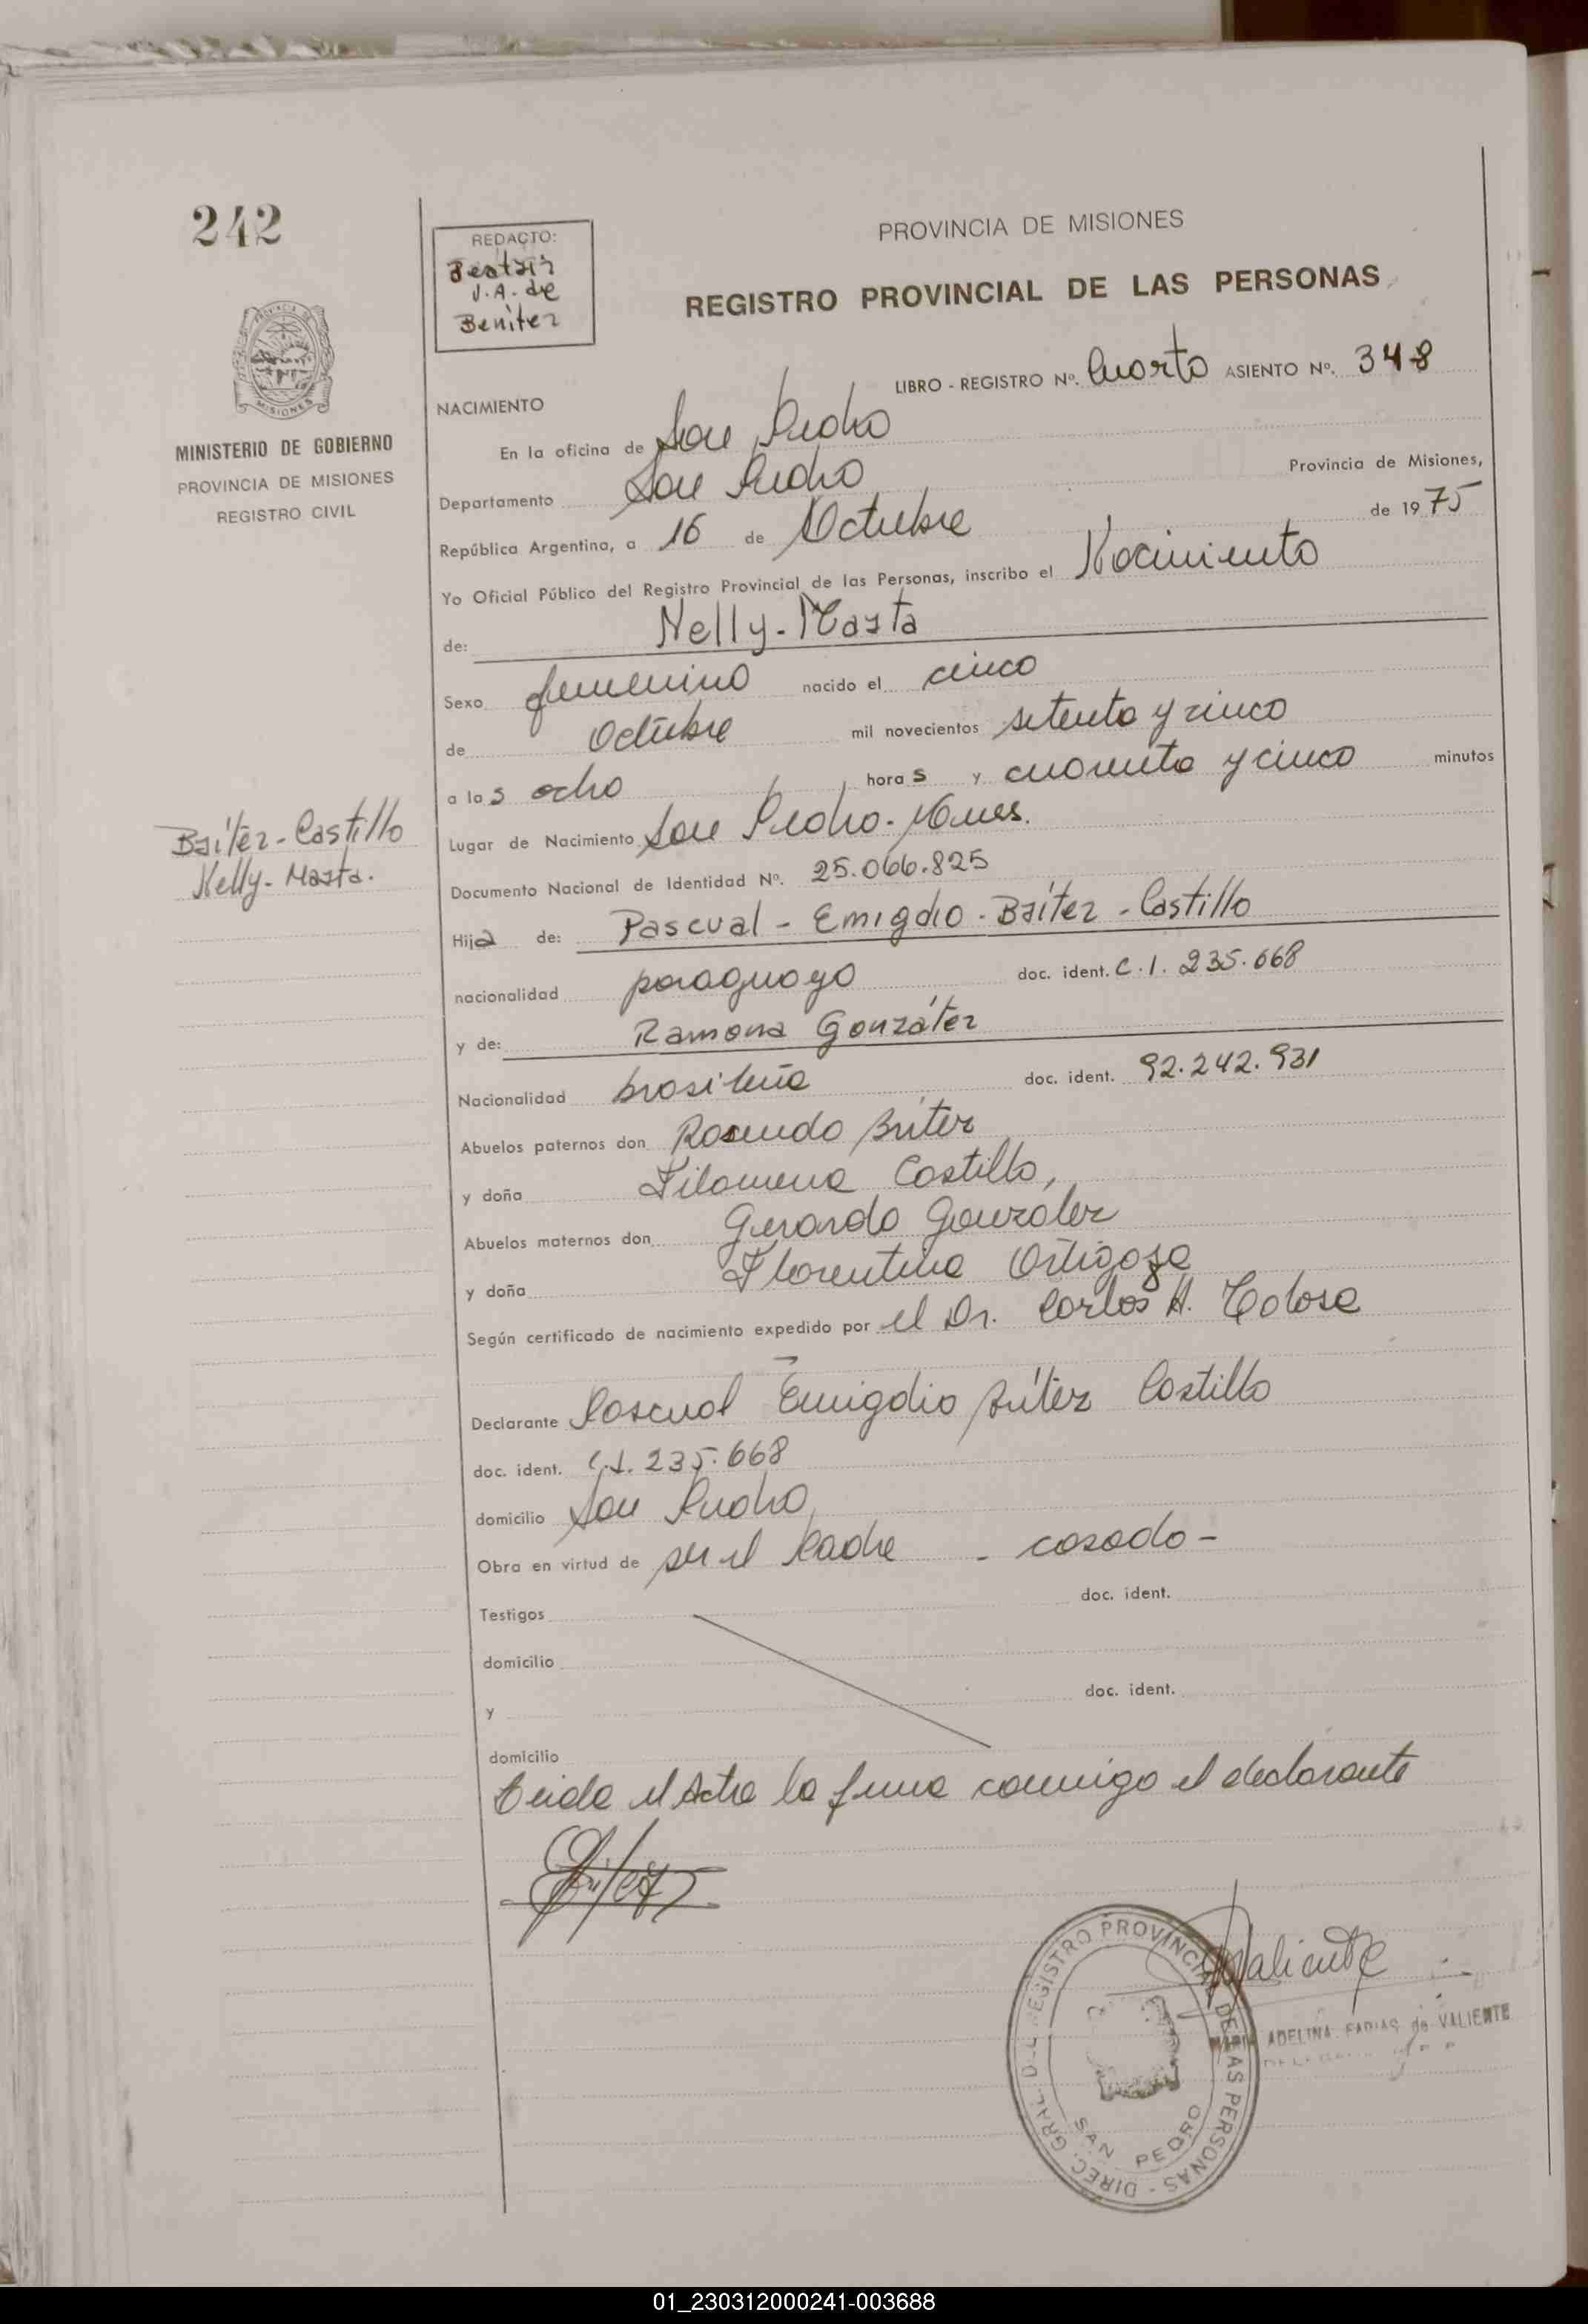 242
REDACTO:
Beatriz
V.A. de
Benitez
PROVINCIA DE MISIONES
REGISTRO PROVINCIAL DE LAS PERSONAS
MISIONES
MINISTERIO DE GOBIERNO
PROVINCIA DE MISIONES
REGISTRO CIVIL
LIBRO - REGISTRO Nº. Cuarto ASIENTO Nº. 348
NACIMIENTO
En la oficina de San Pedro
Departamento San Pedro Provincia de Misiones,
República Argentina, a 16 de Octubre de 1975
Yo Oficial Público del Registro Provincial de las Personas, inscribo el Nacimiento
de: Nelly-Marta
Sexo femenino nacido el cinco
de Octubre mil novecientos setenta y cinco
a las ocho horas y cuarenta y cinco minutos
Lugar de Nacimiento San Pedro-Mnes.
Documento Nacional de Identidad Nº. 25.066.825
Brítez-Castillo
Nelly-Marta.
Hija de: Pascual - Emigdio - Brítez - Castillo
nacionalidad paraguayo doc. ident. C.I. 235.668
y de: Ramona González
Nacionalidad brasileña doc. ident. 92.242.931
Abuelos paternos don Rosendo Britez
y doña Filomena Castillo,
Abuelos maternos don Gerardo Gonzalez
y doña Florentina Ortigoza
Según certificado de nacimiento expedido por el Dr. Carlos A. Tolosa
Declarante Pascual Emigdio Brítez Castillo
doc. ident. C.I. 235.668
domicilio San Pedro
Obra en virtud de ser el Padre - casado -
Testigos doc. ident.
domicilio
y doc. ident.
domicilio
Leida el Acta la firma conmigo el declarante
Valiente
ADELINA FARIAS de VALIENTE
DIREC. GRAL. DEL REGISTRO PROVINCIAL DE LAS PERSONAS -
SAN PEDRO
01_230312000241-003688